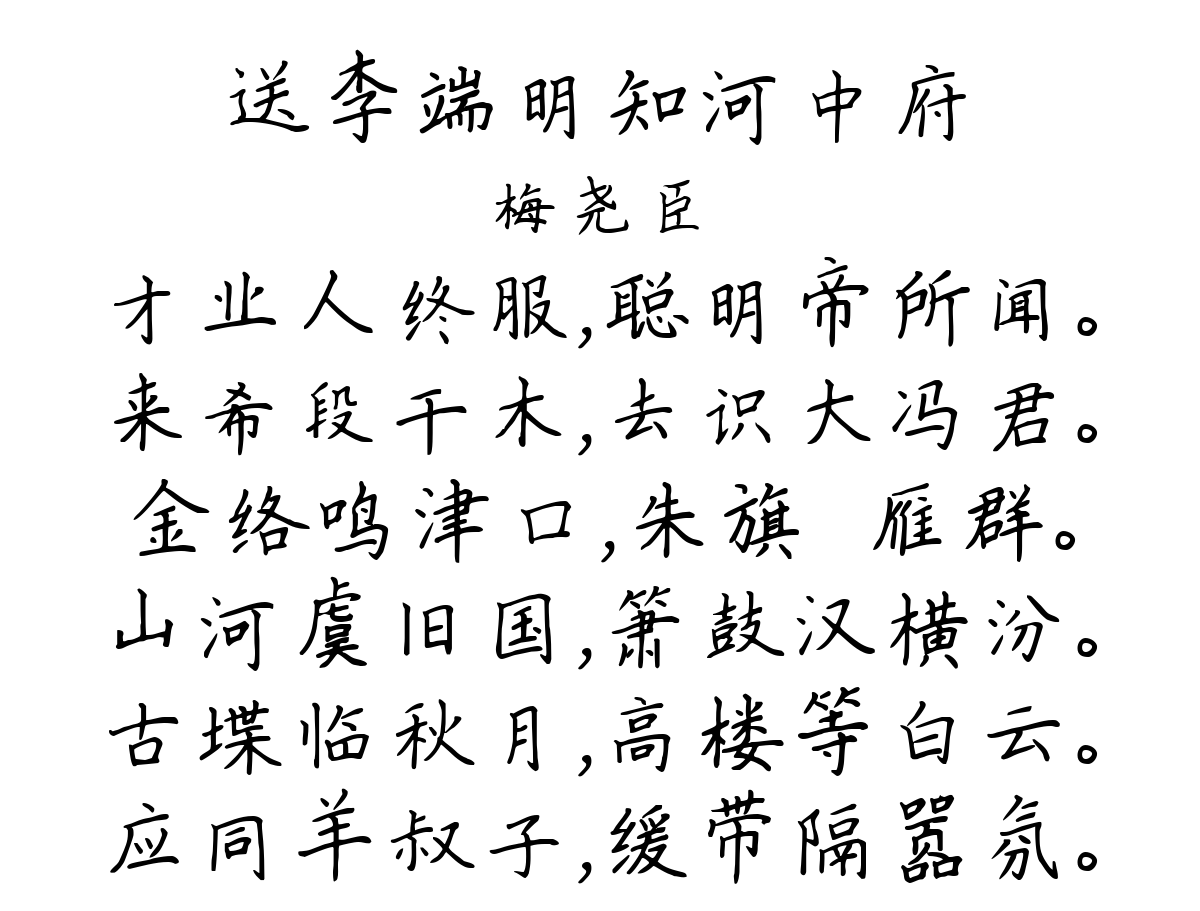 送李端明知河中府
梅尧臣
才业人终服,聪明帝所闻。
来希段干木,去识大冯君。
金络鸣津口,朱旗 雁群。
山河虞旧国,箫鼓汉横汾。
古堞临秋月,高楼等白云。
应同羊叔子,缓带隔嚣氛。